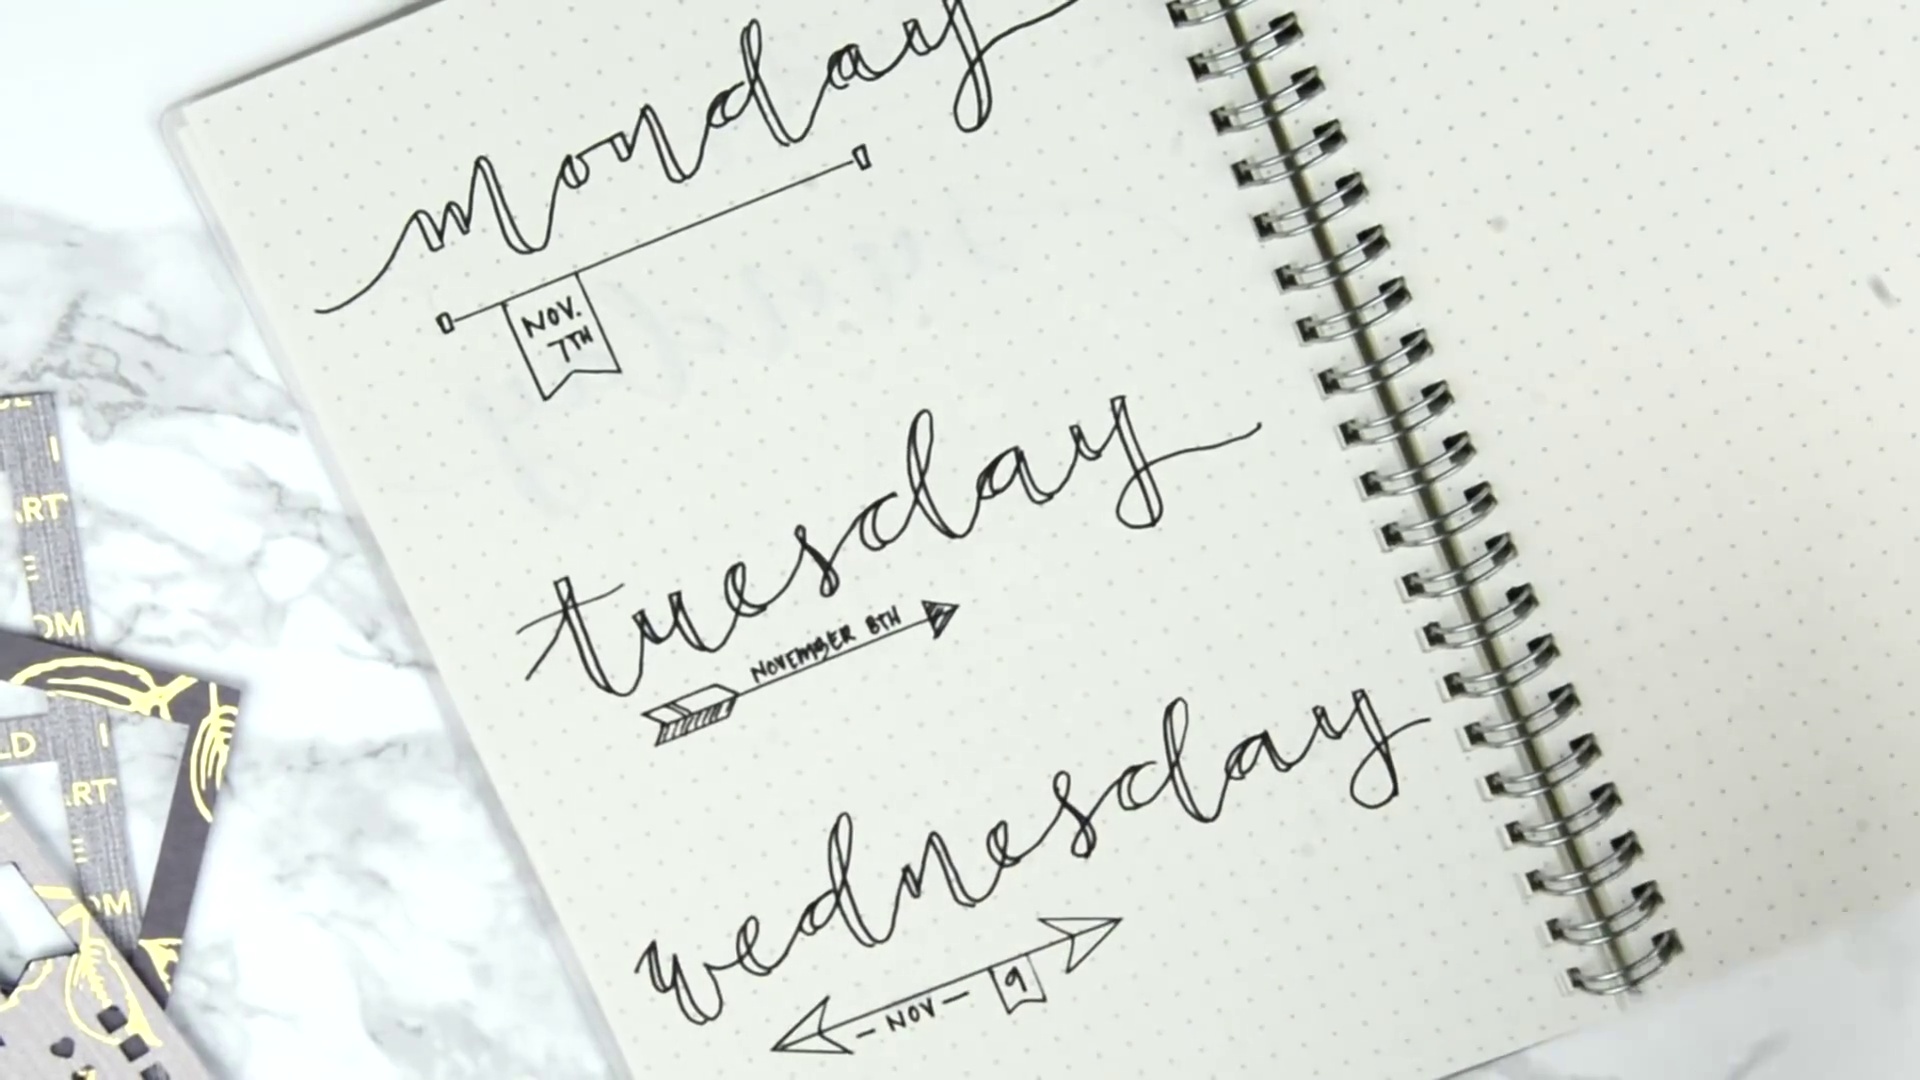 monday
NOV.
7TH
tuesday
NOVEMBER 8TH
wednesday
- NOV -
9
I
ART
E
OM
LD I
ART
E
OM